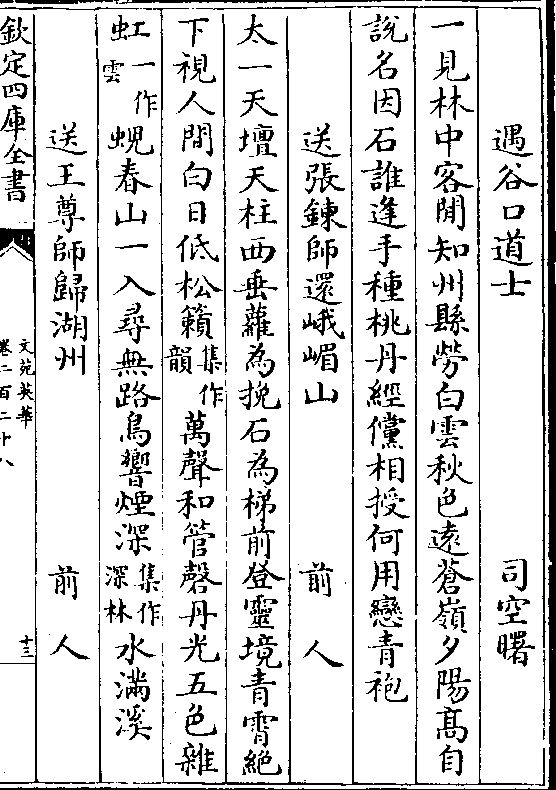 遇谷口道士 司空曙
一見林中客閒知州縣勞白雲秋色遠蒼嶺夕陽髙自
説名因石誰逢手種桃丹經儻相授何用戀青袍
送張鍊師還峨嵋山 前人
太一天壇天柱西垂蘿為挽石為梯前登靈境青霄絶
下視人間白日低松籟集作韻萬聲和管磬丹光五色雜
虹一作雲蜺春山一入尋無路鳥響煙深集作深林水滿溪
送王尊師歸湖州 前人
欽定四庫全書
文苑英華
卷二百二十八
十三